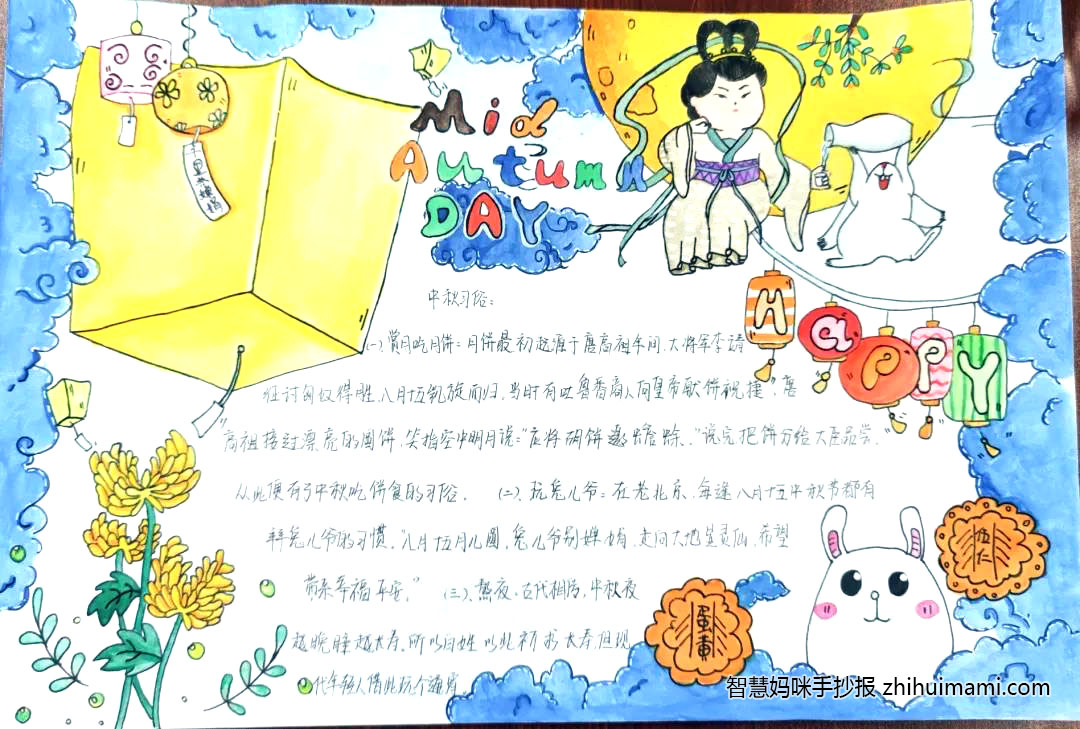 千里共婵娟
Mid
Autumn
DAY
HAPPY
中秋习俗:
(一)、赏月吃月饼:月饼最初起源于唐高祖年间.大将军李靖
征讨匈奴得胜,八月十五凯旋而归.当时有吐鲁番商人向皇帝献饼祝捷".唐
高祖接过漂亮的圆饼,笑指空中明月说:"应将胡饼邀蟾蜍."说完把饼分给大臣品尝."
从此便有了中秋吃饼食的习俗. (二)、玩兔儿爷:在老北京,每逢八月十五中秋节都有
拜兔儿爷的习惯."八月十五月儿圆,兔儿爷别婵娟,走向大地 灵仙,希望
带来幸福平安." (三)、熬夜:古代相传,中秋夜
越晚睡越长寿.所以百姓以此祈求长寿.但现
代年轻人借此玩个通宵
五仁
蛋黄
智慧妈咪手抄报 zhihuimami.com